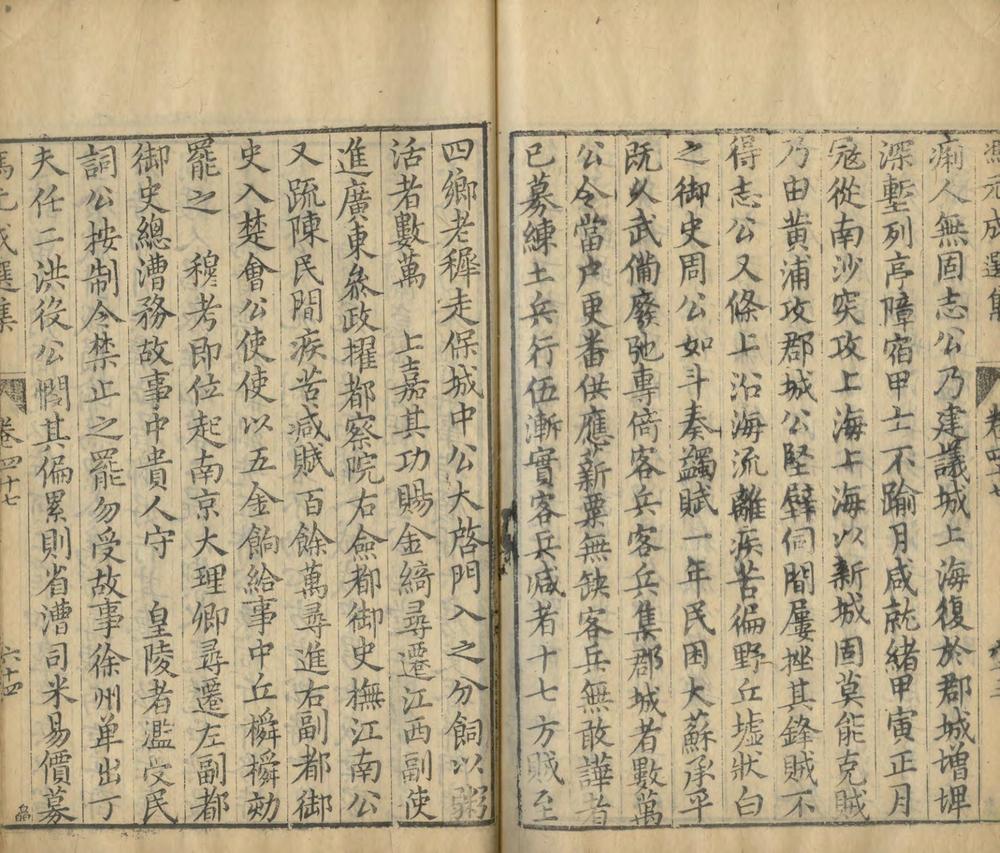 馮元成選集 卷四十七
痢人無固志公乃建議城上海復於郡城增埤
深塹列亭障宿甲士不踰月咸就緒甲寅正月
冦從南沙突攻上海上海以新城固莫能克賊
乃由黃浦攻郡城公堅壁伺間屢挫其鋒賊不
得志公又條上沿海流離疾苦徧野丘墟狀白
之御史周公如斗奏蠲賦一年民困大蘇承平
既久武備廢弛專倚客兵客兵集郡城者數萬
公令當户更番供應新粟無缺客兵無敢譁者
已募練土兵行伍漸實客兵减者十七方賊至
四鄉老穉走保城中公大啓門入之分飼以粥
活者數萬 上嘉其功賜金綺尋遷江西副使
進廣東叅政擢都察院右僉都御史撫江南公
又疏陳民間疾苦减賦百餘萬尋進右副都御
史入楚會公使使以五金餉給事中丘橓橓劾
罷之 穆考即位起南京大理卿尋遷左副都
御史總漕務故事中貴人守 皇陵者濫受民
詞公按制令禁止之罷勿受故事徐州单出丁
夫任二洪役公憫其偏累則省漕司米易價募
馮元成選集 卷四十七 六十四